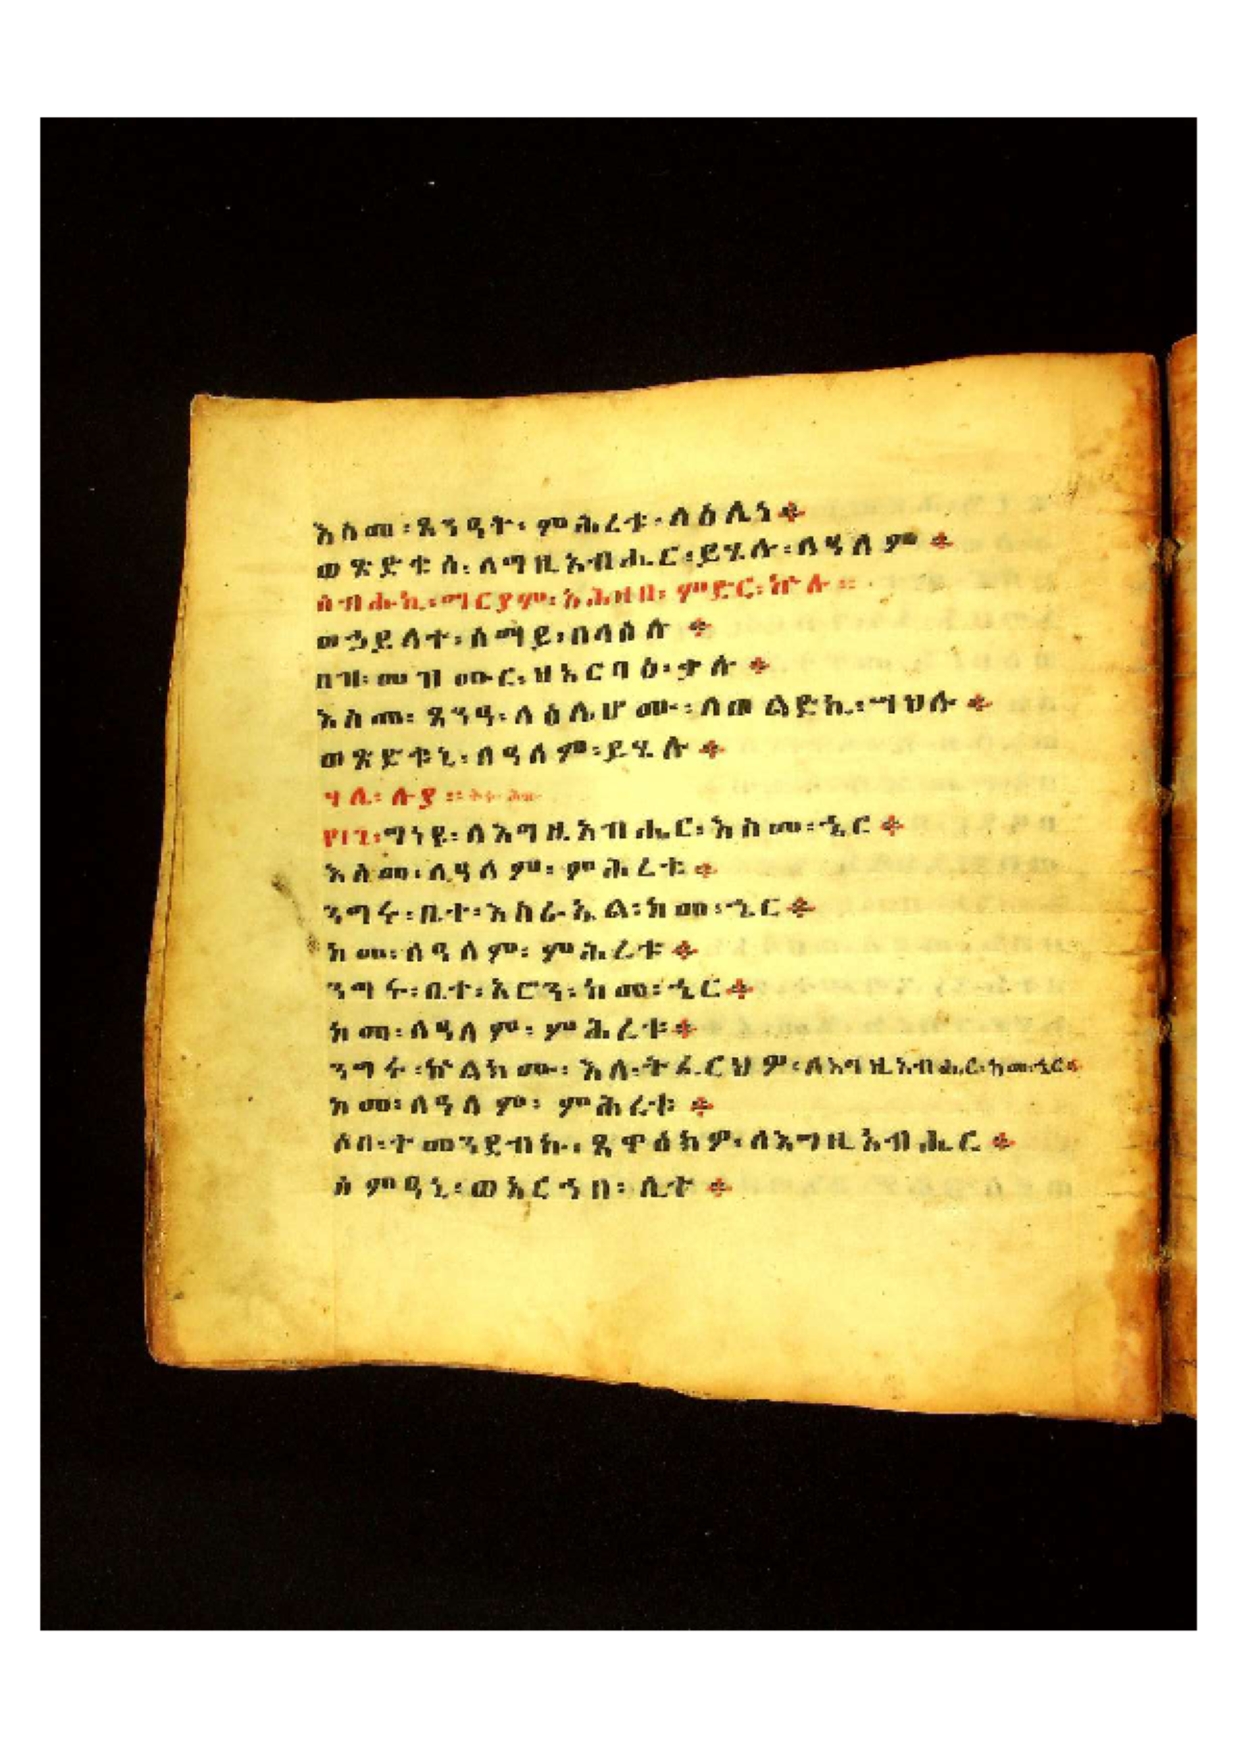 እስመ፡ጸንዓት፡ምሕረቱ፡ላዕሌነ።
ወጽድቁሰ፡ለእግዚአብሔር፡ይሄሉ፡ለዓለም።
ሰብሑኪ፡ማርያም፡አሕዛበ፡ምድር፡ኵሉ።
ወኃይላተ፡ሰማይ፡በላዕሉ።
በዝ፡መዝሙር፡ዘአርባዕ፡ቃሉ።
እስመ፡ጸንዓ፡ላዕሌሆሙ፡ለወልድኪ፡ሣህሉ።
ወጽድቁኒ፡ለዓለም፡ይሄሉ።
ሃሌ፡ሉያ።
ግነዩ፡ለእግዚአብሔር፡እስመ፡ኄር።
እስመ፡ለዓለም፡ምሕረቱ።
ንግሩ፡ቤተ፡እስራኤል፡ከመ፡ኄር።
ከመ፡ለዓለም፡ምሕረቱ።
ንግሩ፡ቤተ፡አሮን፡ከመ፡ኄር።
ከመ፡ለዓለም፡ምሕረቱ።
ንግሩ፡ኵልክሙ፡እለ፡ትፈርህዎ፡ለእግዚአብሔር፡ከመ፡ኄር።
ከመ፡ለዓለም፡ምሕረቱ።
ሶበ፡ተመንደብኩ፡ጸዋዕክዎ፡ለእግዚአብሔር።
ሰምዓኒ፡ወአርኀበ፡ሊተ።